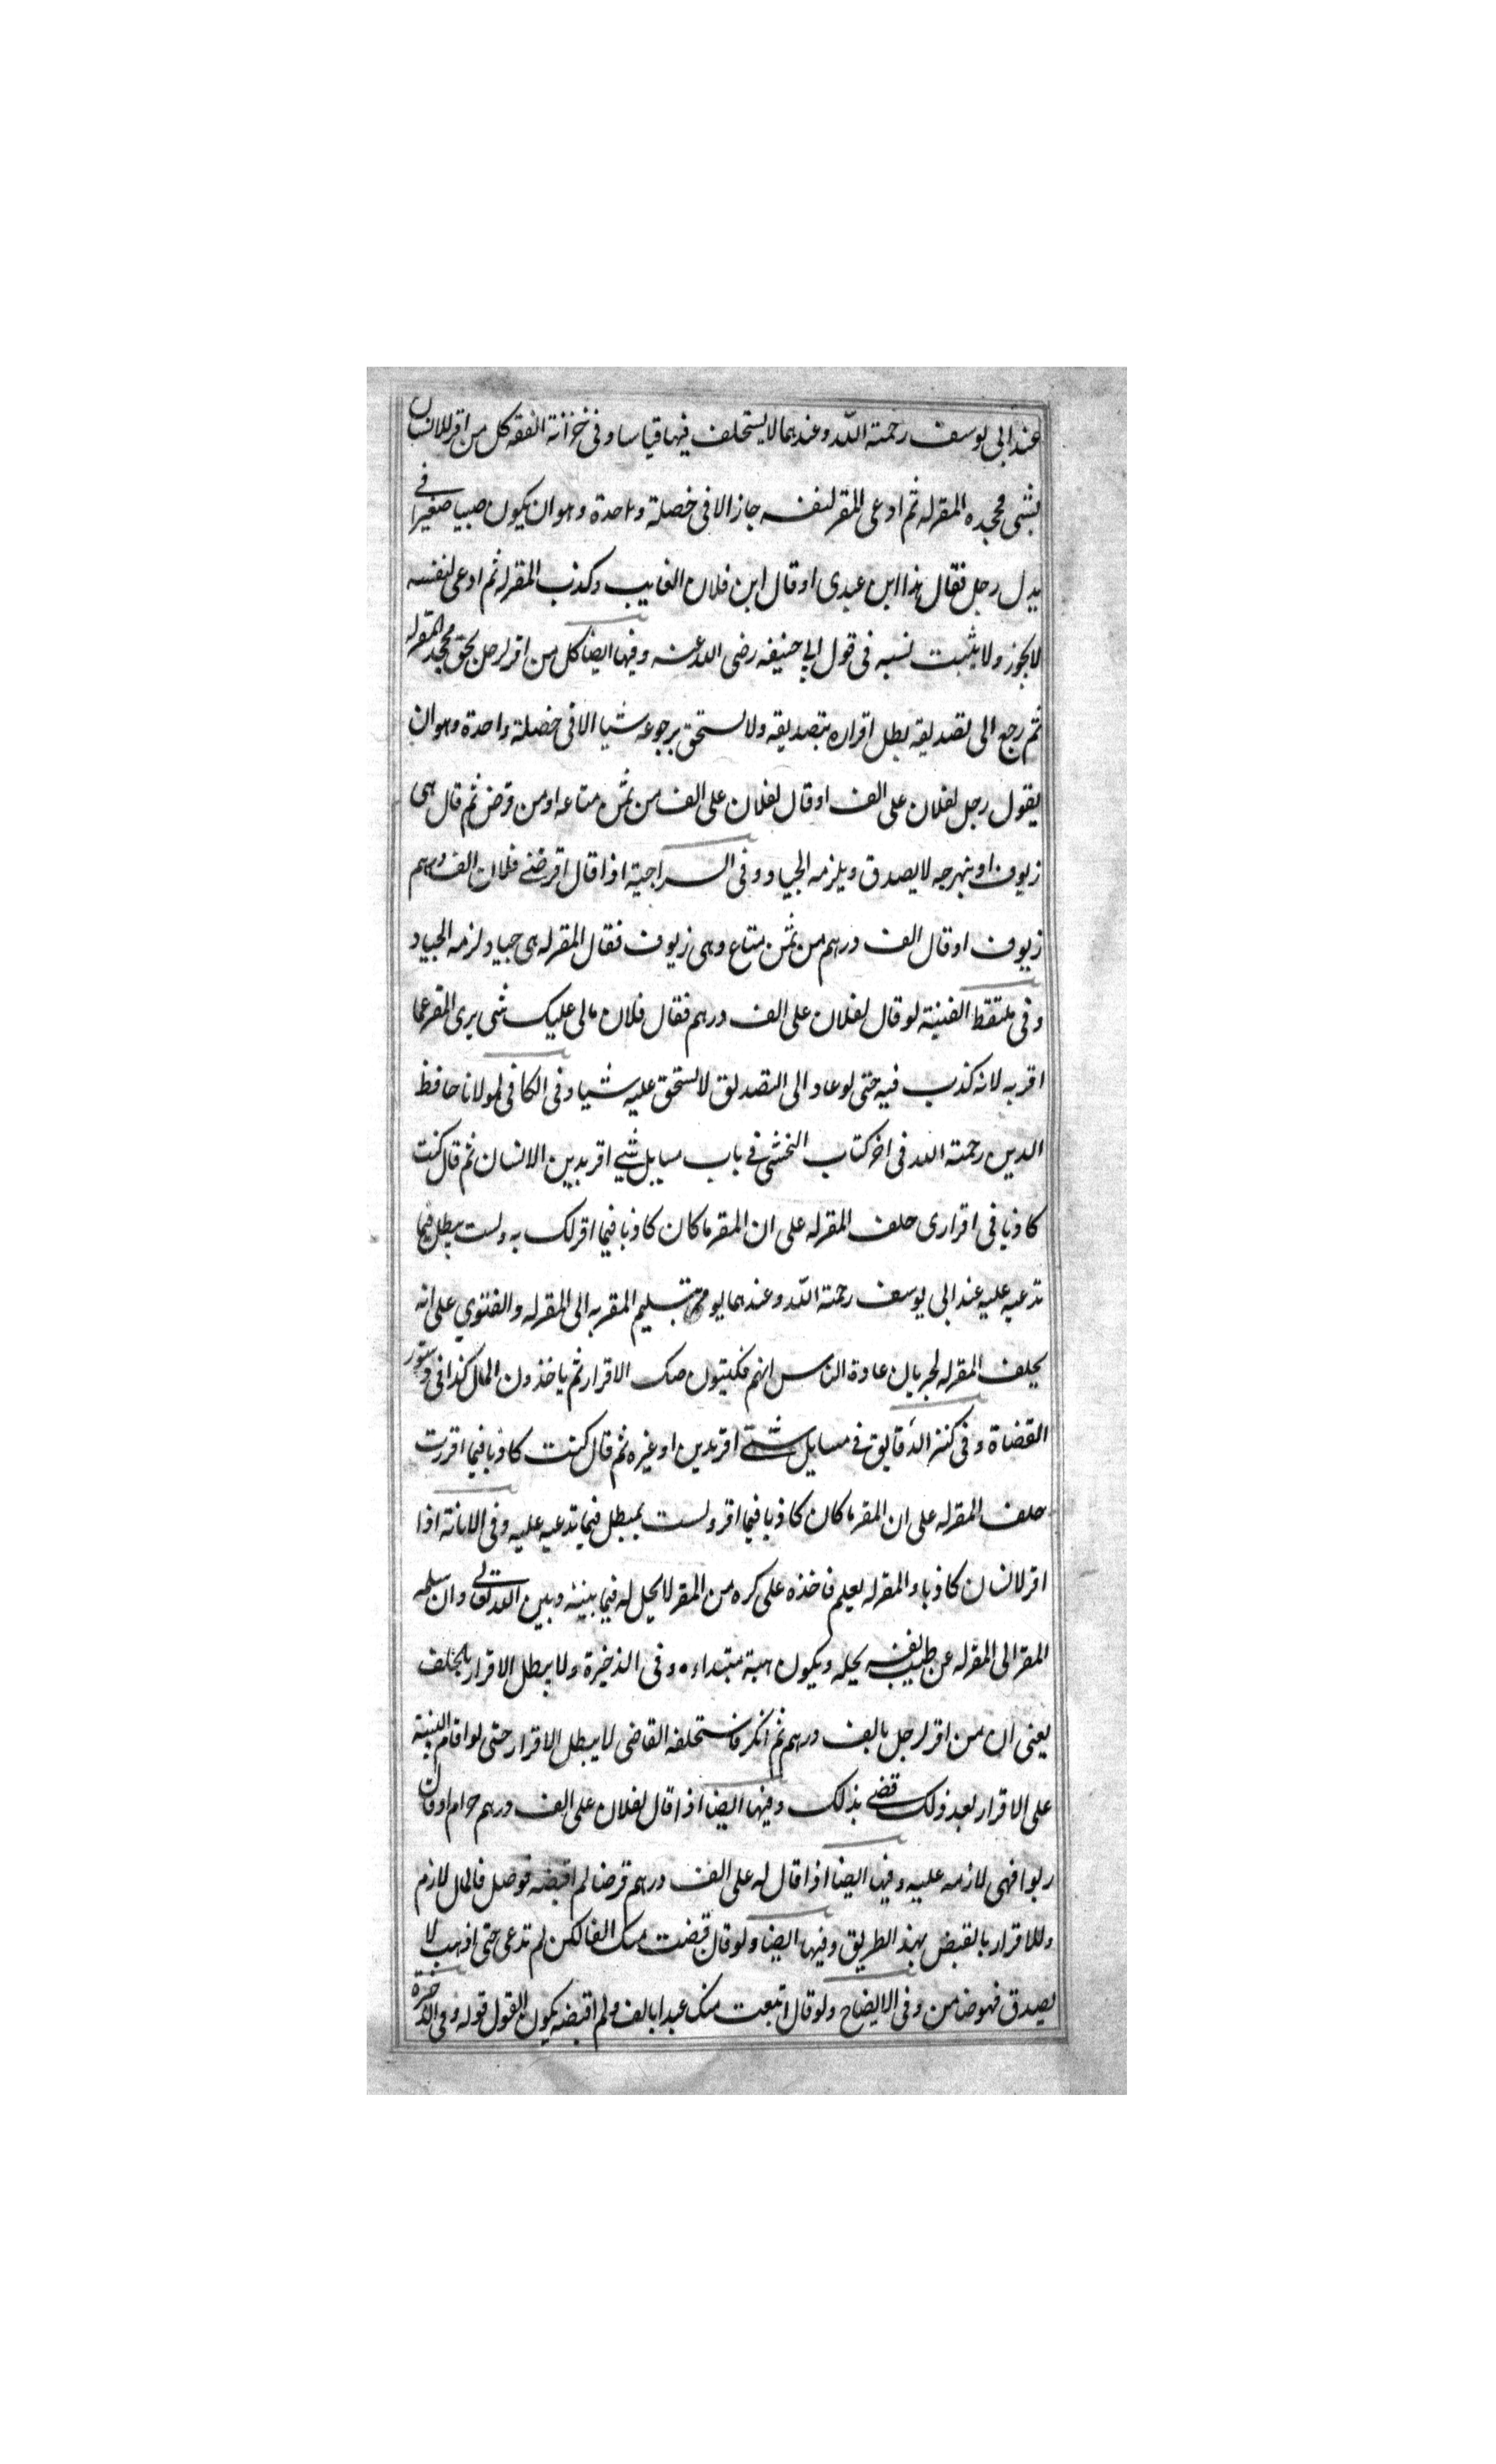 عند ابى يوسف رحمة الله وعندهما لا يستحلف فيها قياسا وفى خزانة الفقه كل من اقر للانسان
بشى فجحده المقرله ثم ادعى المقر لنفسه جاز الا فى خصلة واحدة وهو ان يكون صبيا صغيرا فى
يد رجل فقال هذا ابن عبدى او قال ابن فلان الغايب وكذب المقرله ثم ادعى لنفسه
لا يجوز ولا يثبت نسبه فى قول ابى حنيفه رضى الله عنه وفيها ايضا كل من اقر لرجل بحق فجحد المقرله
ثم رجع الى تصديقه بطل اقراره بتصديقه ولا يستحق برجوعه شيا الا فى خصلة واحدة وهو ان
يقول رجل لفلان على الف او قال لفلان على الف من ثمن متاعه او من قرض ثم قال هى
زيوف او بنهرجه لا يصدق ويلزمه الجياد وفى السراجية اذا قال اقرضنى فلان الف درهم
زيوف او قال الف درهم من ثمن متاع وهى زيوف فقال المقرله هى جياد لزمه الجياد
وفى ملتقط الغنية لو قال لفلان على الف درهم فقال فلان مالى عليك شى برى المقر عما
اقر به لانه كذب فيه حتى لو عاد الى التصديق لا يستحق عليه شيا وفى الكافى لمولانا حافظ
الدين رحمة الله فى اخر كتاب الخنثى فى باب مسايل شتى اقر بدين الانسان ثم قال كنت
كاذبا فى اقرارى حلف المقرله على ان المقر ما كان كاذبا فيما اقر لك به ولست بمبطل فيما
تدعيه عليه عند ابى يوسف رحمة الله وعندهما يومر بتسليم المقر به الى المقرله والفتوى على انه
يحلف المقرله لجريان عادة الناس انهم يكتبون صك الاقرار ثم ياخذون المال كذا فى دستور
القضاة وفى كنز الدقايق فى مسايل شتى اقر بدين او غيره ثم قال كنت كاذبا فيما اقررت
حلف المقرله على ان المقر ما كان كاذبا فيما اقر ولست بمبطل فيما تدعيه عليه وفى الابانة اذا
اقر لانسان كاذبا والمقرله يعلم فاخذه على كره من المقر لا يحل له فيما بينه وبين الله تعالى وان سلمه
المقر الى المقرله عن طيب نفسه يحله ويكون هبة مبتداءه وفى الذخيرة ولا يبطل الاقرار بالحلف
يعنى ان من اقر لرجل بالف درهم ثم انكر فاستحلفه القاضى لا يبطل الاقرار حتى لو اقام البينة
على الاقرار بعد ذلك قضى بذلك وفيها ايضا اذا قال لفلان على الف درهم حرام او قال
ربوا فهى لازمه عليه وفيها ايضا اذا قال له على الف درهم قرضا لم اقبضه فوصل فالمال لازم
وللاقرار بالقبض بهذ الطريق وفيها ايضا ولو قال قبضت منك الفا لكن لم تدعى حتى اذهب لا
يصدق فهو ضامن وفى الايضاح ولو قال ابتعت منك عبدا بالف ولم اقبضه يكون القول قوله وفى الذخيرة